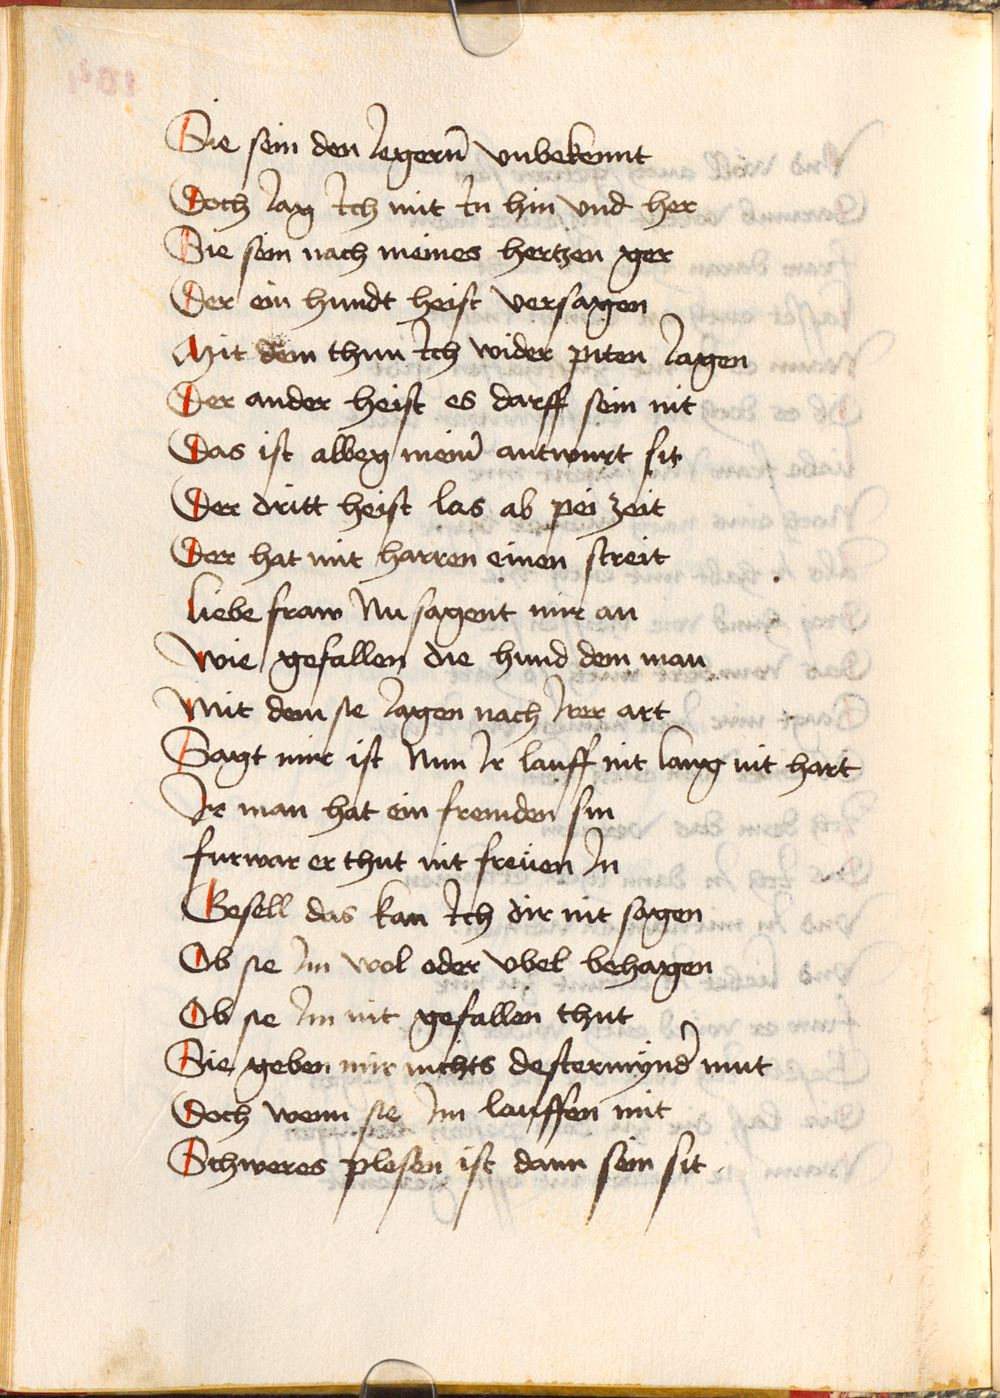 Sie sein den Jegern̄ vnbekennt
Doch Jag Ich mit In hin vnd her
Sie sein nach meines hertzen ger
Der ein hundt heist versagen
Mit dem thun Ich wider piten Jagen
Der ander heist es darff sein nit
Das ist alweg mein̄ antwurt sit
Der dritt heist las ab pei zeit
Der hat mit harren einen streit
Liebe fraw Nu sagent mir an
Wie gefallen die hund dem man
Mit dem sie Jagen nach Irer art
Sagt mir ist Nun Ir lauff nit lang nit hart
Ir man hat ein fremden sin
furwar er thut nit freüen In
Gesell das kan Ich dir nit sagen
Ob sie Im wol oder vbel behagen
Ob sie Im nit gefallen thut
Sie geben mir nichts destermynd̄ mut
Doch wenn sie Im lauffen mit
Schweres plesen ist dann sein sit